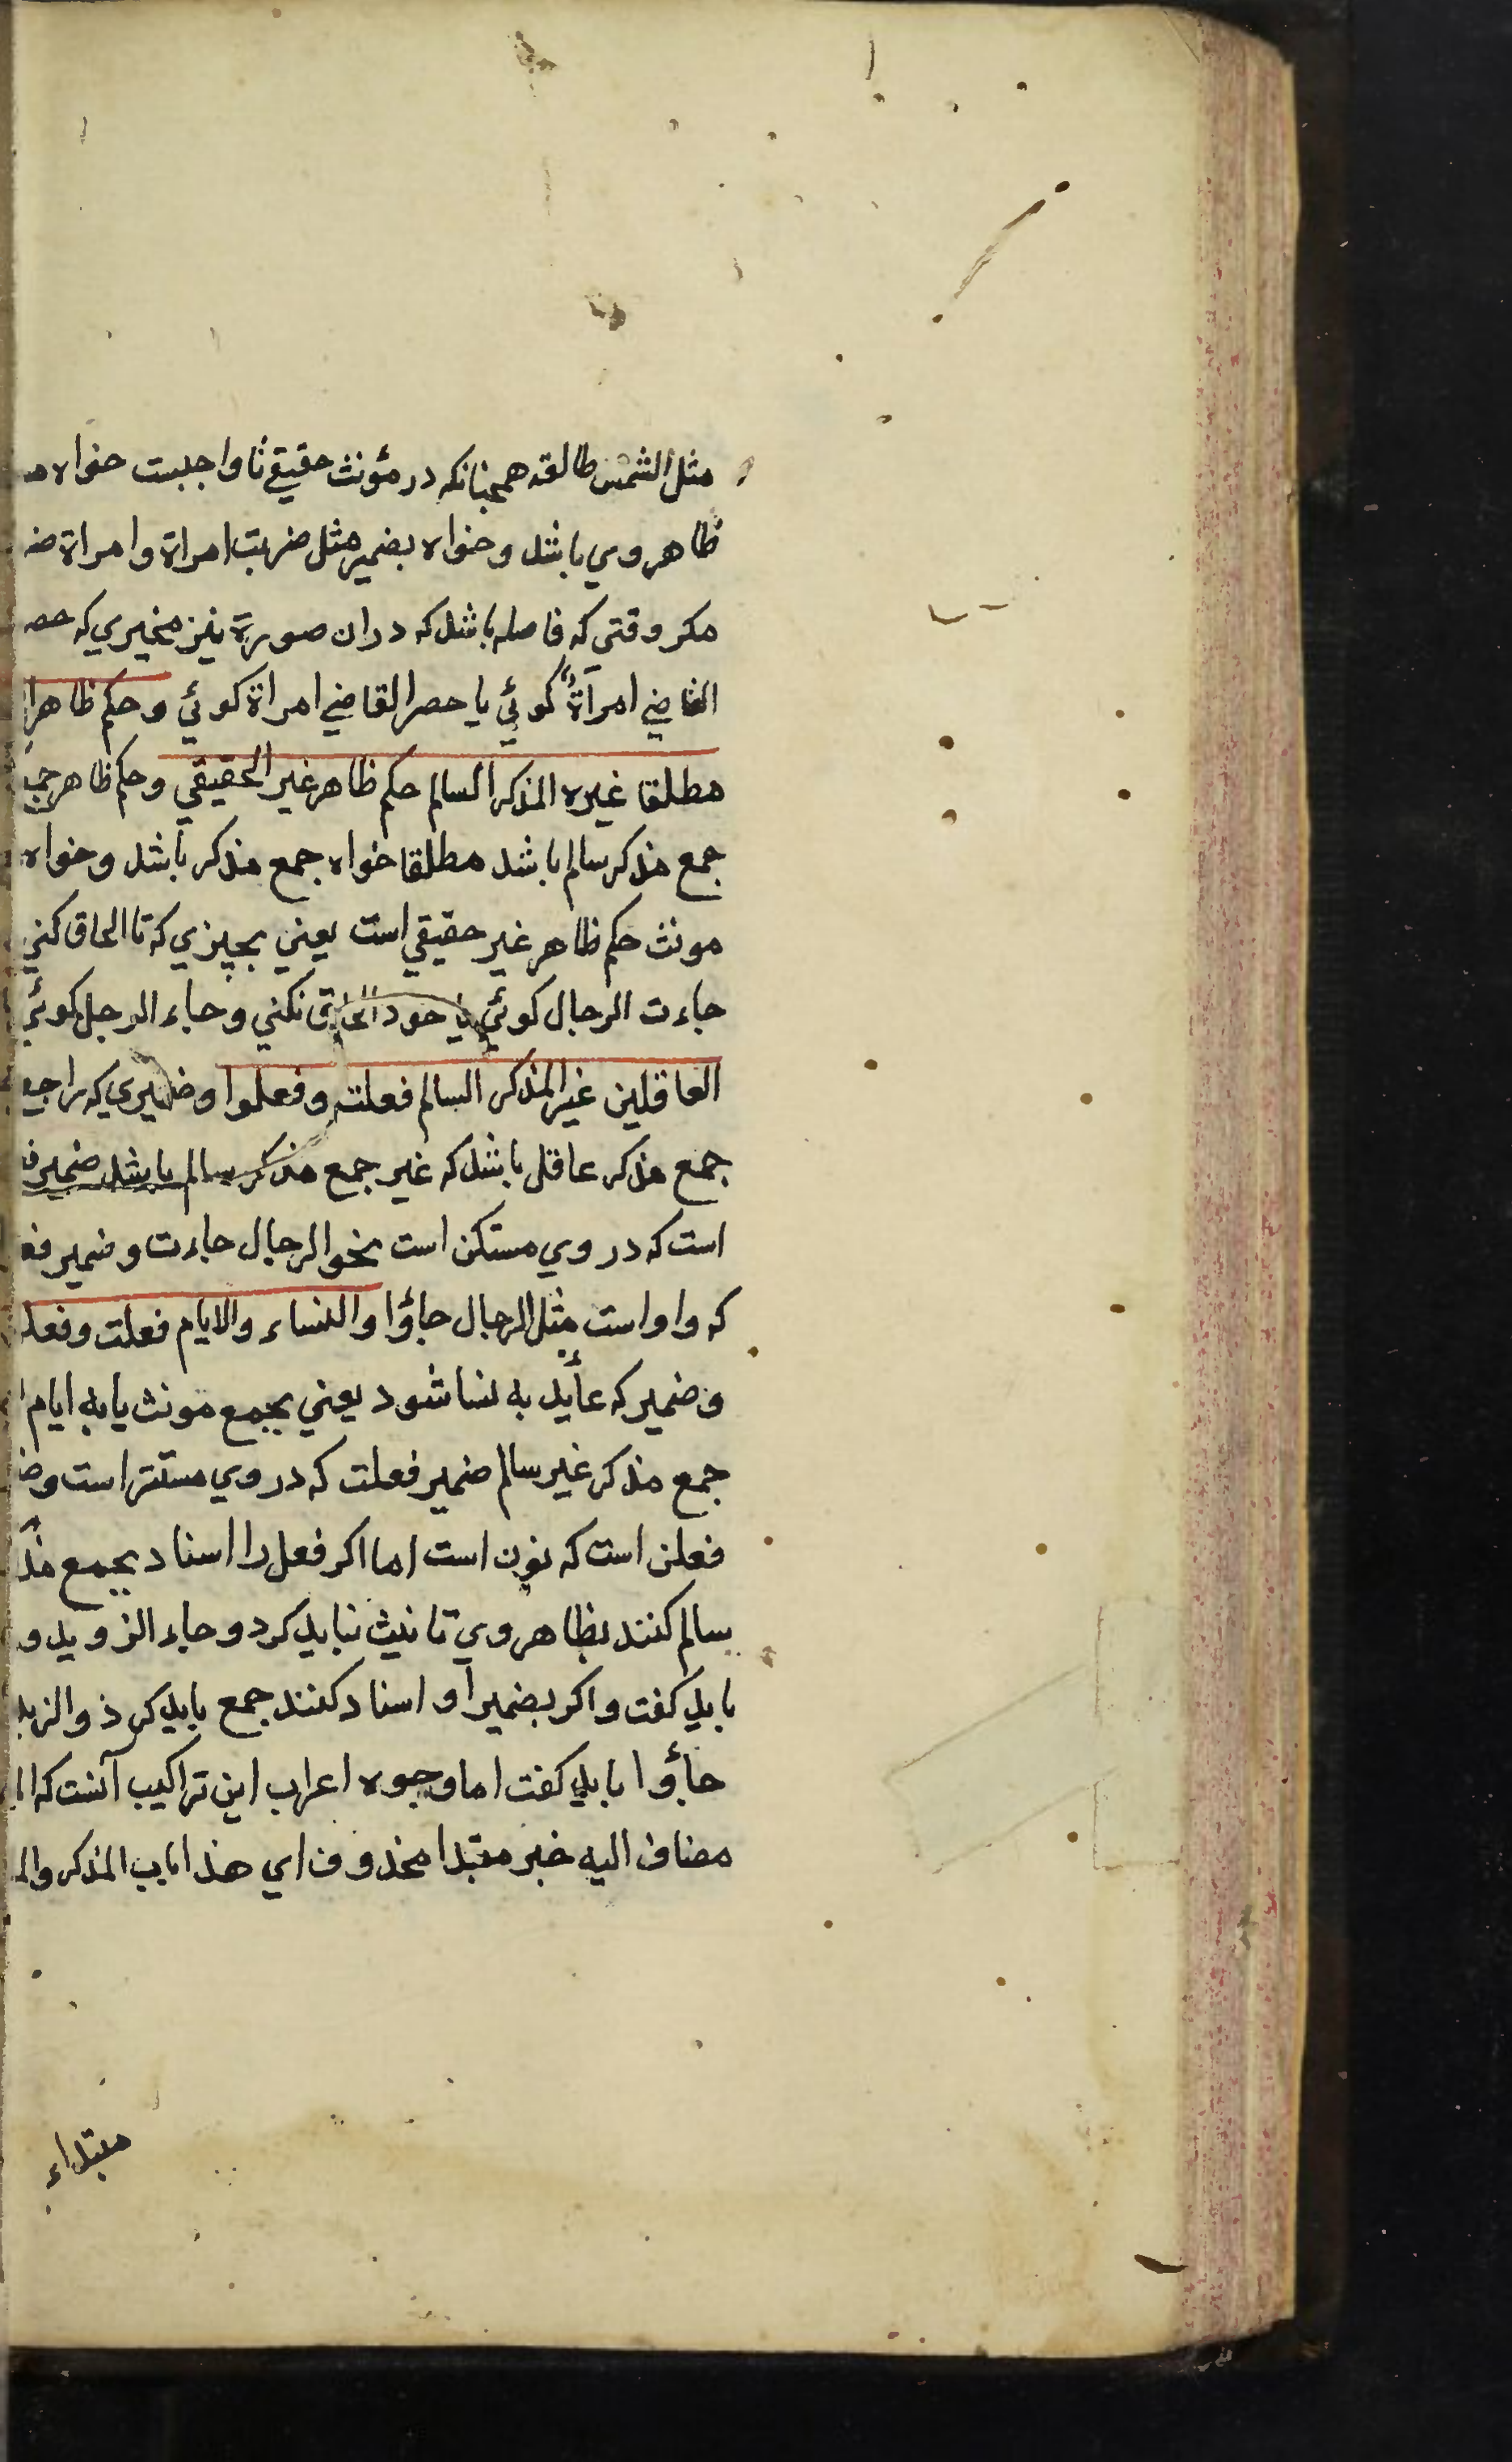 مثل الشمس طالقه همچنانكه در مؤنث حقيقي تا واجبست خواه
ظاهر وي باشد وخواه بضمير مثل ضربت امراة وامراة
مكر وقتى كه فاصله باشد كه دران صورة نيز مخيري كه
القاضي امرآة كوئي يا حصر القاضي امراة كوئي وحكم ظاهر
مطلقا غيره المذكر السالم حكم ظاهر غير الحقيقي وحكم ظاهر
جمع مذكر سالم باشد مطلقا خواه جمع مذكر باشد وخواه
مونث حكم ظاهر غير حقيقي است يعني بچيزي كه تا الحاق كني
جاءت الرجال كوئي يا خود الحاق نكني وجاء الرجل كوئي
العاقلين غير المذكر السالم فعلت وفعلوا وضميري كه راجع
جمع مذكر عاقل باشد كه غير جمع مذكر سالم باشد ضمير
است كه در وي مستكن است نحو الرجال جاءت وضمير
كه واو است مثل الرجال جاؤا والنساء والايام فعلت
وضمير كه عأيد به نسا شود يعني بجمع مونث يا به ايام
جمع مذكر غير سالم ضمير فعلت كه در وي مستتر است
فعلن است كه نون است اما اكر فعل را اسناد بجمع
سالم كنند بظاهر وي تانيث نبايد كرد وجاء الزويد و
بايد كفت واكر بضمير او اسناد كنند جمع بايد كرد والزيد
جاؤا بايد كفت اما وجوه اعراب اين تراكيب آنست كه
مضاف اليه خبر مبتدا محذوف اي هذا باب المذكر
مبتداء